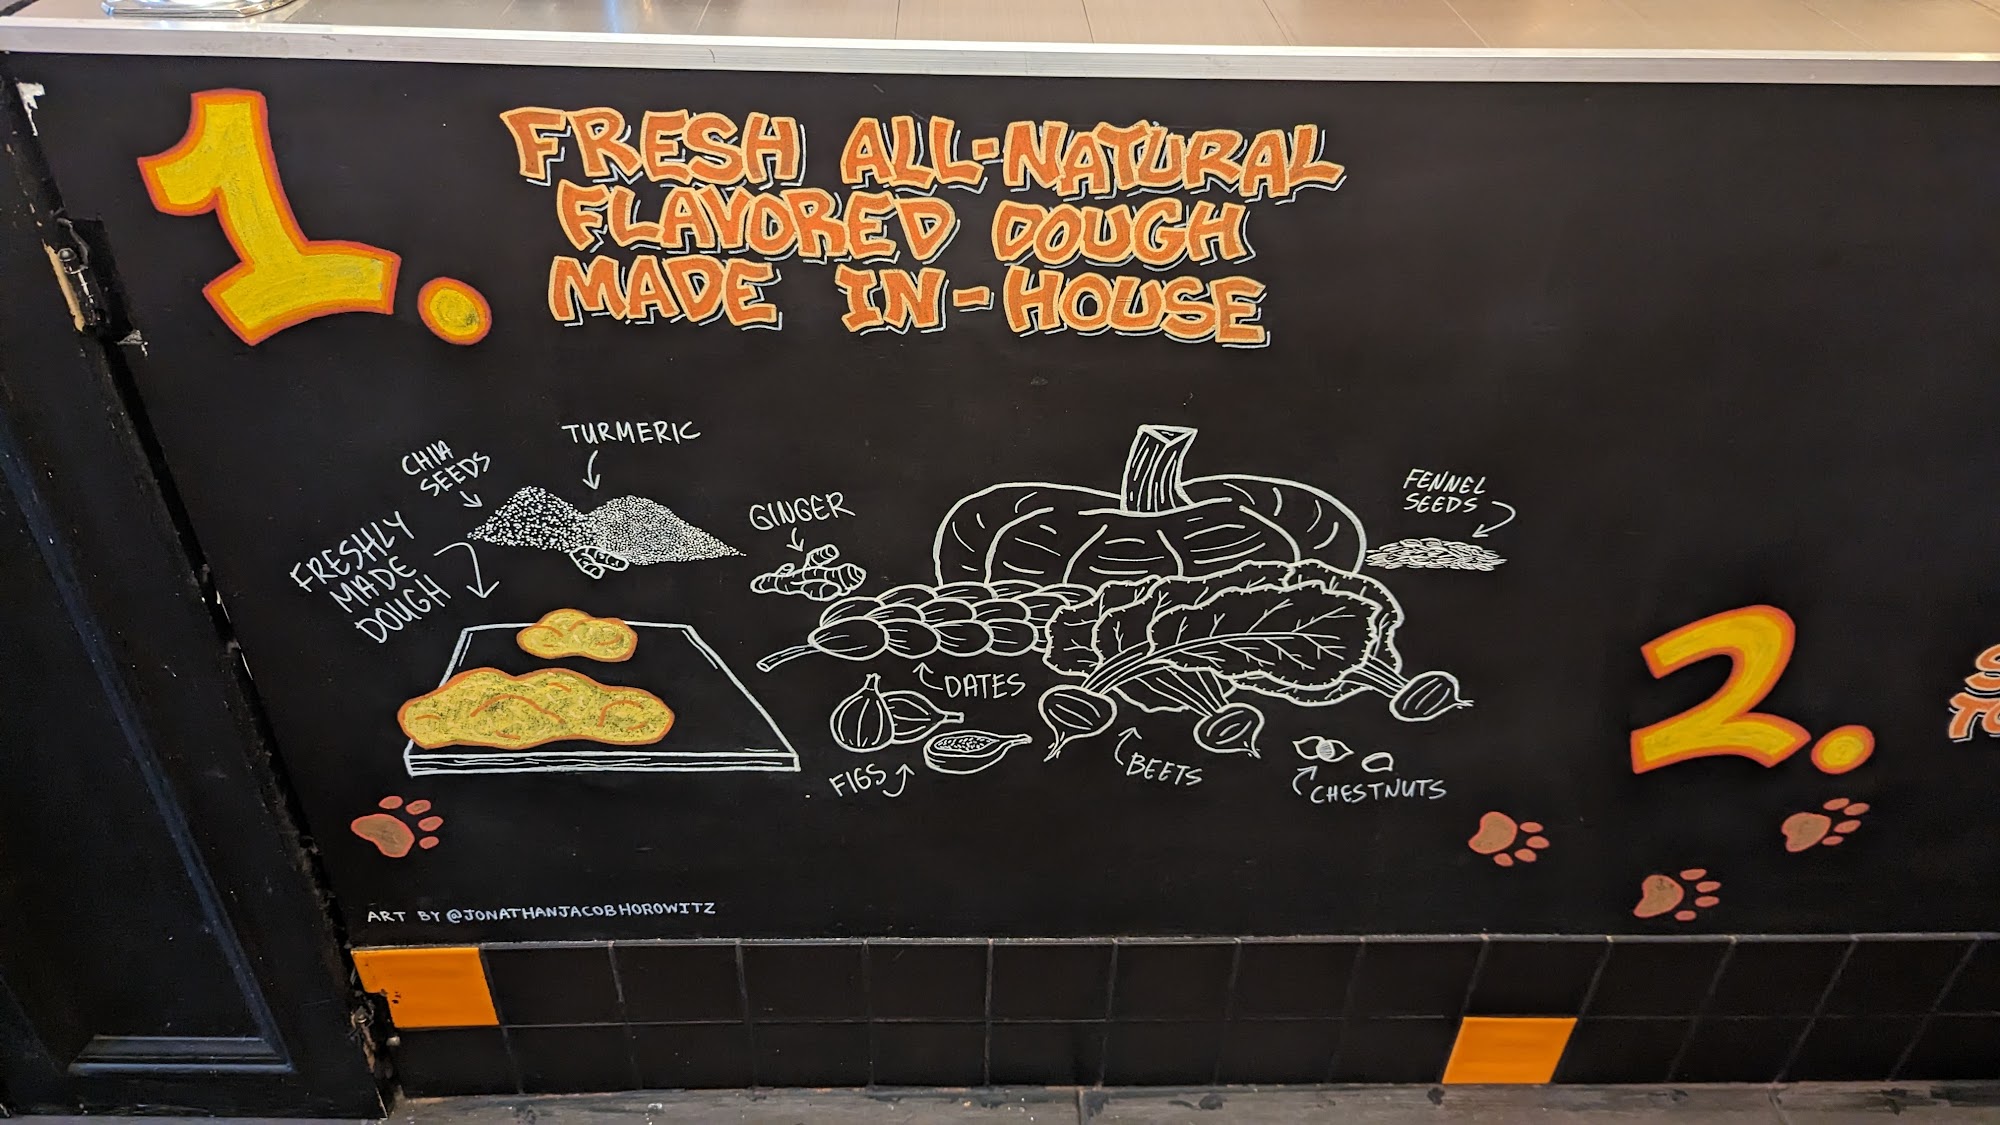 1.
FRESH ALL-NATURAL
FLAVORED DOUGH
MADE IN-HOUSE
CHIA
SEEDS
TURMERIC
FRESHLY
MADE
DOUGH
GINGER
FENNEL
SEEDS
DATES
FIGS
BEETS
CHESTNUTS
2.
ART BY @JONATHANJACOBHOROWITZ